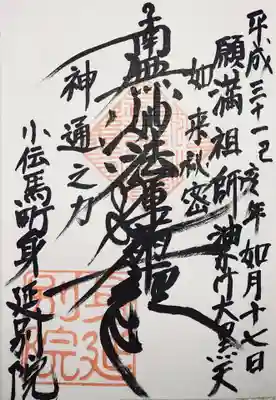 平成三十一己亥年如月十七日
願満祖師 油かけ大黒天
如来秘密
南無妙法蓮華経
神通之力
小伝馬町身延別院
身延別院